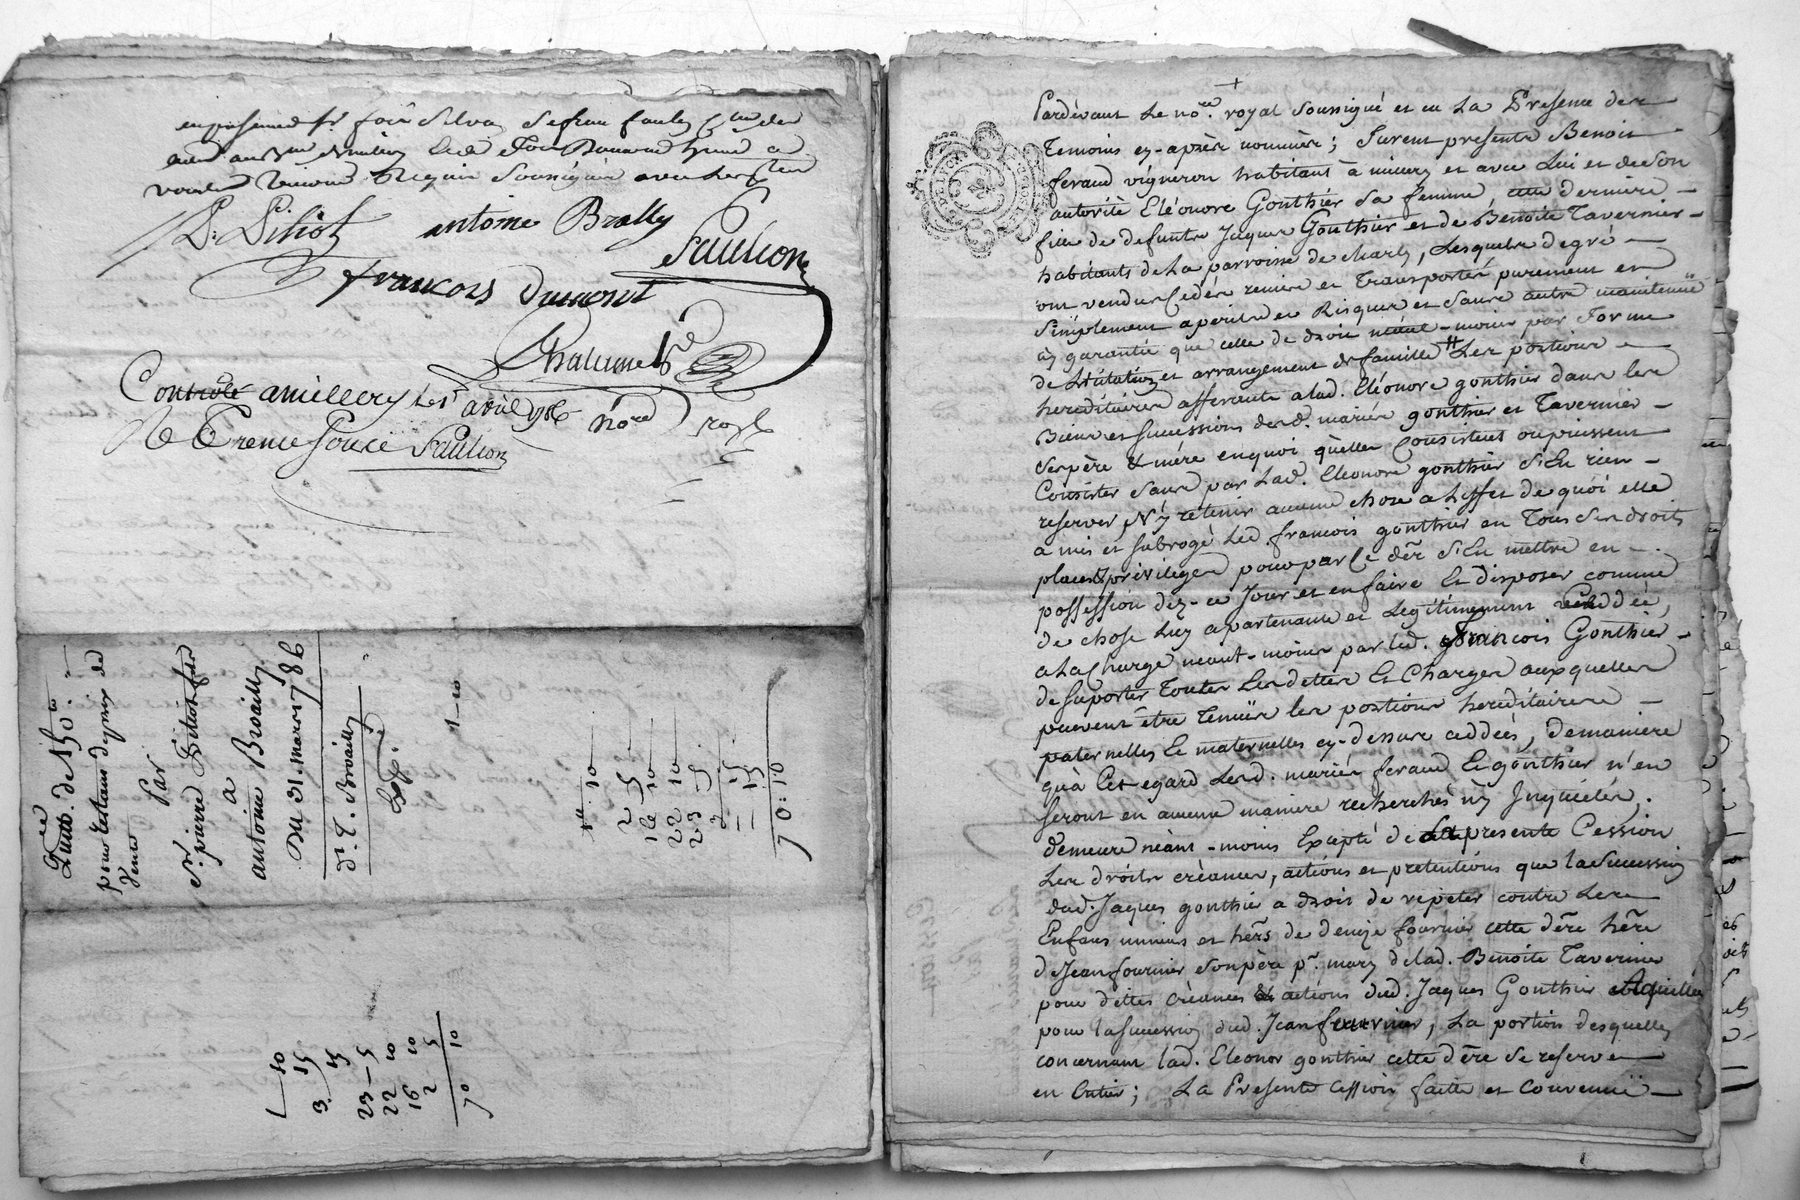 en présence
avec
voulu soussigné avec
P. Pitiot antoine Brally
Saulion
francois dumont
Chalumel
Controlé a millery Le 1er avril 1786 nore royl
Re Trense Sous Saulion
Quitt. de 150 ₶
pour Restant du prix de
Vente
Par
Sr. pierre Pitiot
a
antoine Broailly
Du 31. mars 1786
dt. E. Broailly
Exp.
1-10
10
2 5
16 10
22 10
23 5
2
15
15
70:10
10
15
3. 15
23-5
22 10
16 10
2 5
70 10
+
Pardevant Le nore. royal Soussigné et en La Presence des
Temoins cy-après nommés; furent presents Benoit
feraud vigneron habitant à millery et avec Lui et de Son
autorité Eléonore Gonthier Sa femme cette derniere
fille de defunts Jaques Gonthier et de Benoite Tavernier
habitants de La parroisse de charly, Lesquels de gré
ont vendus Cédés remis et Transportés purement et
Simplement a perils et Risques et Sans autre maintenuë
ny garantie que celle de droit neant-moins par forme
de Licitation et arrangement de famille # Les portions
hereditaires afferente a lad. Eléonore gonthier dans les
Biens et successions desd. mariés gonthier et Tavernier
Ses père & mère en quoi qu'elles Consistent ou puissent
Consister Sans par Lad. Eleonore gonthier S'En rien
reserver Ny retenir aucune chose a L'effet de quoi elle
a mis et subrogé Led. francois gonthier en Tous Ses droits
places & privileges pour par Ce der S'En mettre en
possession dez-ce Jour et en faire Et disposer comme
de chose Luy apartenante et Legitimement Ceddée,
a La Charge neant-moins par led. francois Gonthier
de suporter Toutes Les dettes Et Charges auxquelles
peuvent être Tenuës les portions hereditaires
paternelles Et maternelles cy-dessus ceddées, de maniere
qu'à Cet egard Lesd. mariés feraud Et gonthier n'en
seront en aucune maniere recherchés ny Inquietés.
demeure néant-moins Excepté de La presente Cession
Les droits créances, actions et pretentions que la Succession
dud. Jaques gonthier a droit de répéter contre Les
Enfans mineurs et hers de denize fournier cette dere here
de Jean fournier Son père pr. mary de lad. Benoite Tavernier
pour dettes créances & actions dud. Jaques Gonthier
pour la Succession dud. Jean fournier, La portion desquelles
concernant lad. Eleonor gonthier cette dere se reserve
en Entier; La Presente Cession faitte et Convenuë